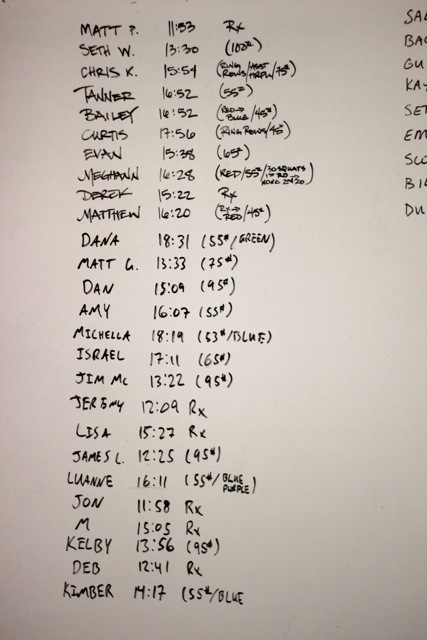 MATT P. 11:53 Rx
SETH W. 13:30 (100#)
CHRIS K. 15:54 (RING ROWS/ASST HRPU/75#)
TANNER 16:52 (55#)
BAILEY 16:52 (RED→BLUE/45#)
CURTIS 17:56 (RING ROWS/45)
EVAN 15:38 (65#)
MEGHANN 16:28 (RED/55#/30 SQUATS
DEREK 15:22 Rx
MATTHEW 16:20 (Rx→RED/45#)
DANA 18:31 (55#/GREEN)
MATT G. 13:33 (75#)
DAN 15:09 (95#)
AMY 16:07 (55#)
MICHELLA 18:19 (53#/BLUE)
ISRAEL 17:11 (65#)
JIM MC 13:22 (95#)
JEREMY 12:09 Rx
LISA 15:27 Rx
JAMES L. 12:25 (95#)
LUANNE 16:11 (55#/BLUE PURPLE)
JON 11:58 Rx
M 15:05 Rx
KELBY 13:56 (95#)
DEB 12:41 Rx
KIMBER 14:17 (55#/BLUE
SA
BA
GU
KA
SE
EM
SC
BI
DU